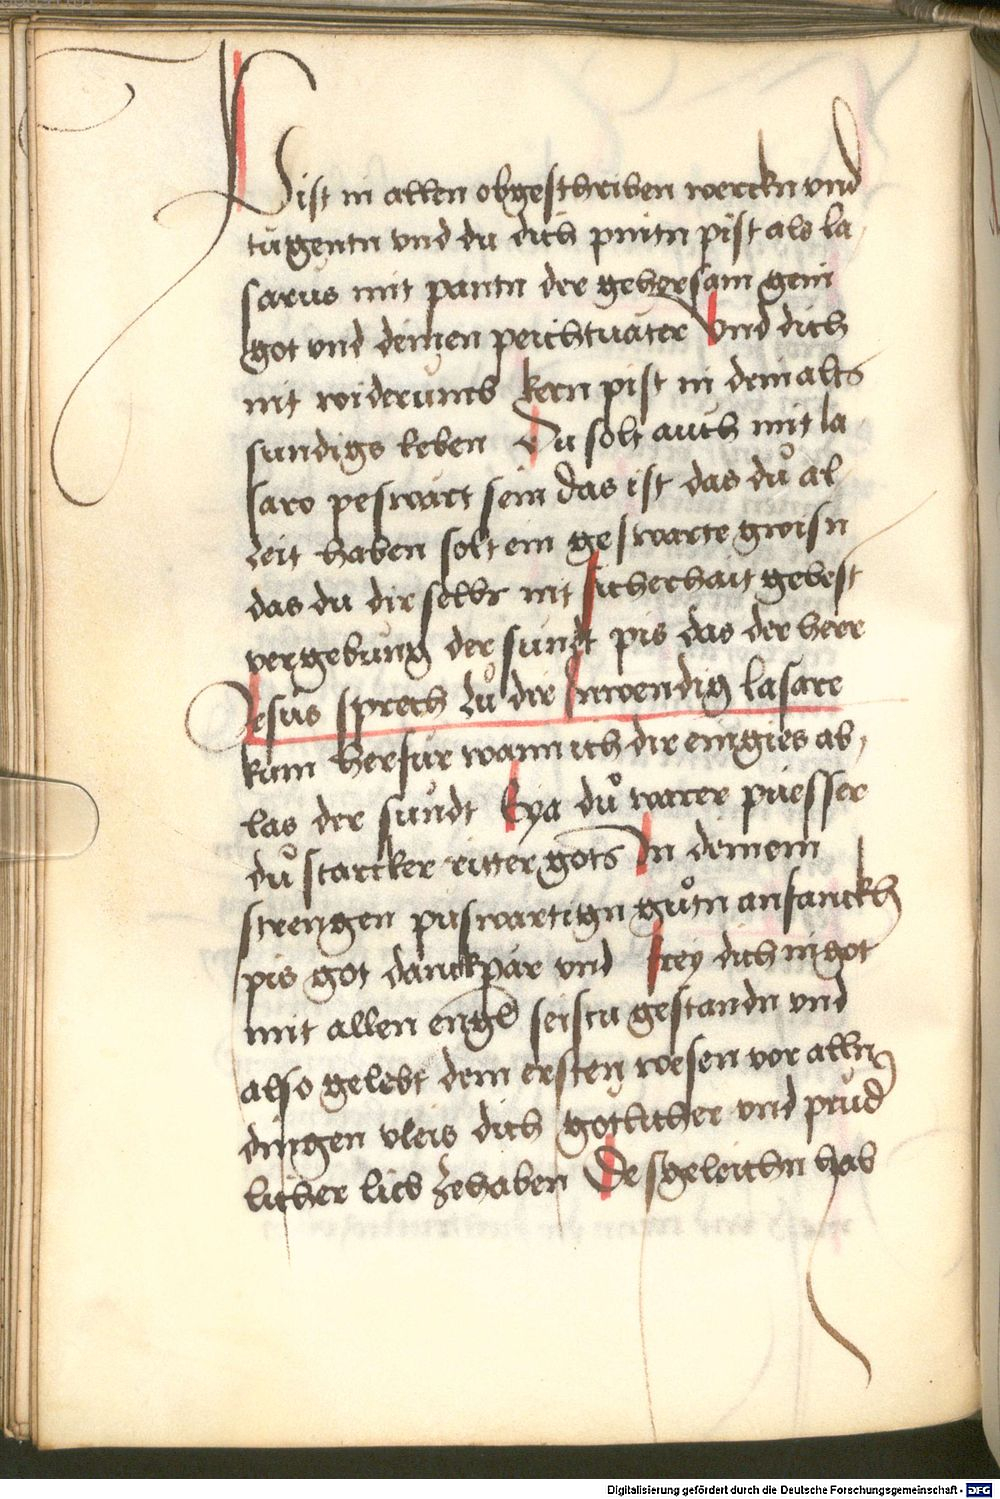 Pist in allen obgeschriben werckn vnd
tugentn vnd du dich pintn pist als la,
sarus mit pantn der gehersam gein
got vnd deinen peichtuater Vnd dich
nit widerumb kern pist in dein alts
sundigs leben Du solt auch mit la
saro peswärt sein das ist das dů al
zeit haben solt ein geswarte gwisn
das du dir selbr nit sicherhait gebest
vergebung der sundt pis das der herr
Jesus sprech zů dir Inwendig lasare
kum herfur wann ich dir eingies ab,
las der sůndt Eya dů warer püesser
dů starcker ritter gots In deinem
strengen puswartign gůtn anfanckh
pis got danckpär vnd frey dich in got
mit allen engl seistu gestandn vnd
also gelebt dem ersten wesen vor alln
dingen vleis dich gotlicher vnd průd
licher lieb zehaben Desgeleichn hab
Digitalisierung gefördert durch die Deutsche Forschungsgemeinschaft - DFG